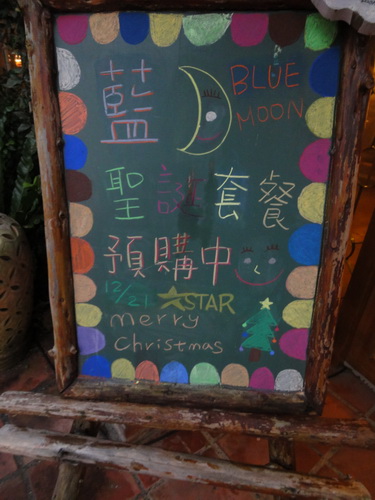 藍 BLUE
MOON
聖誕套餐
預購中
12/21 STAR
merry
Christmas